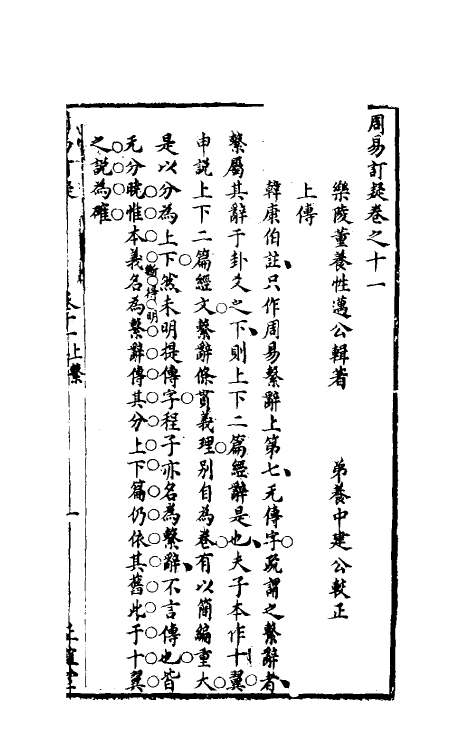 周易訂疑卷之十一
樂陵董養性邁公輯著　弟養中建公較正
上傳
韓康伯註只作周易繫辭上第七无傳字疏謂之繫辭者
繫屬其辭于卦爻之下則上下二篇經辭是也夫子本作十翼
申說上下二篇經文繫辭條貫義理别自為卷有以簡編重大
是以分為上下然未明提傳字程子亦名為繫辭不言傳也皆
无分曉惟本義名為繫辭傳其分上下篇仍依其舊此于十翼
之說為確
明
上繫
一